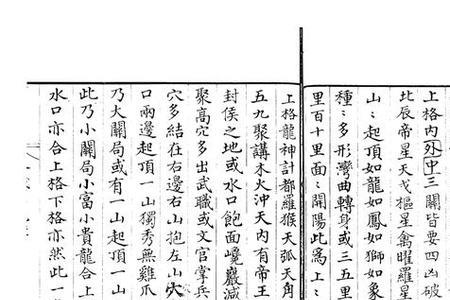 上格内外中三關皆要四凶破
北辰帝星天戈樞星禽曜羅星
山︰起頂如龍如鳳如獅如象
種︰多形彎曲轉身或三五里
里百十里面︰開陽此爲上︰
上格龍神計都羅猴天弧天角
五九聚講木火沖天内有帝王
封侯之地或水口飽面巉巖減
聚高穴多出武職或文官掌兵
穴多結在右邊右山抱左山穴
口兩邊起頂一山獨秀無雞爪
乃大關局或有一山起頂一山
此乃小關局小富小貴龍合上
水口亦合上格下格亦然此一